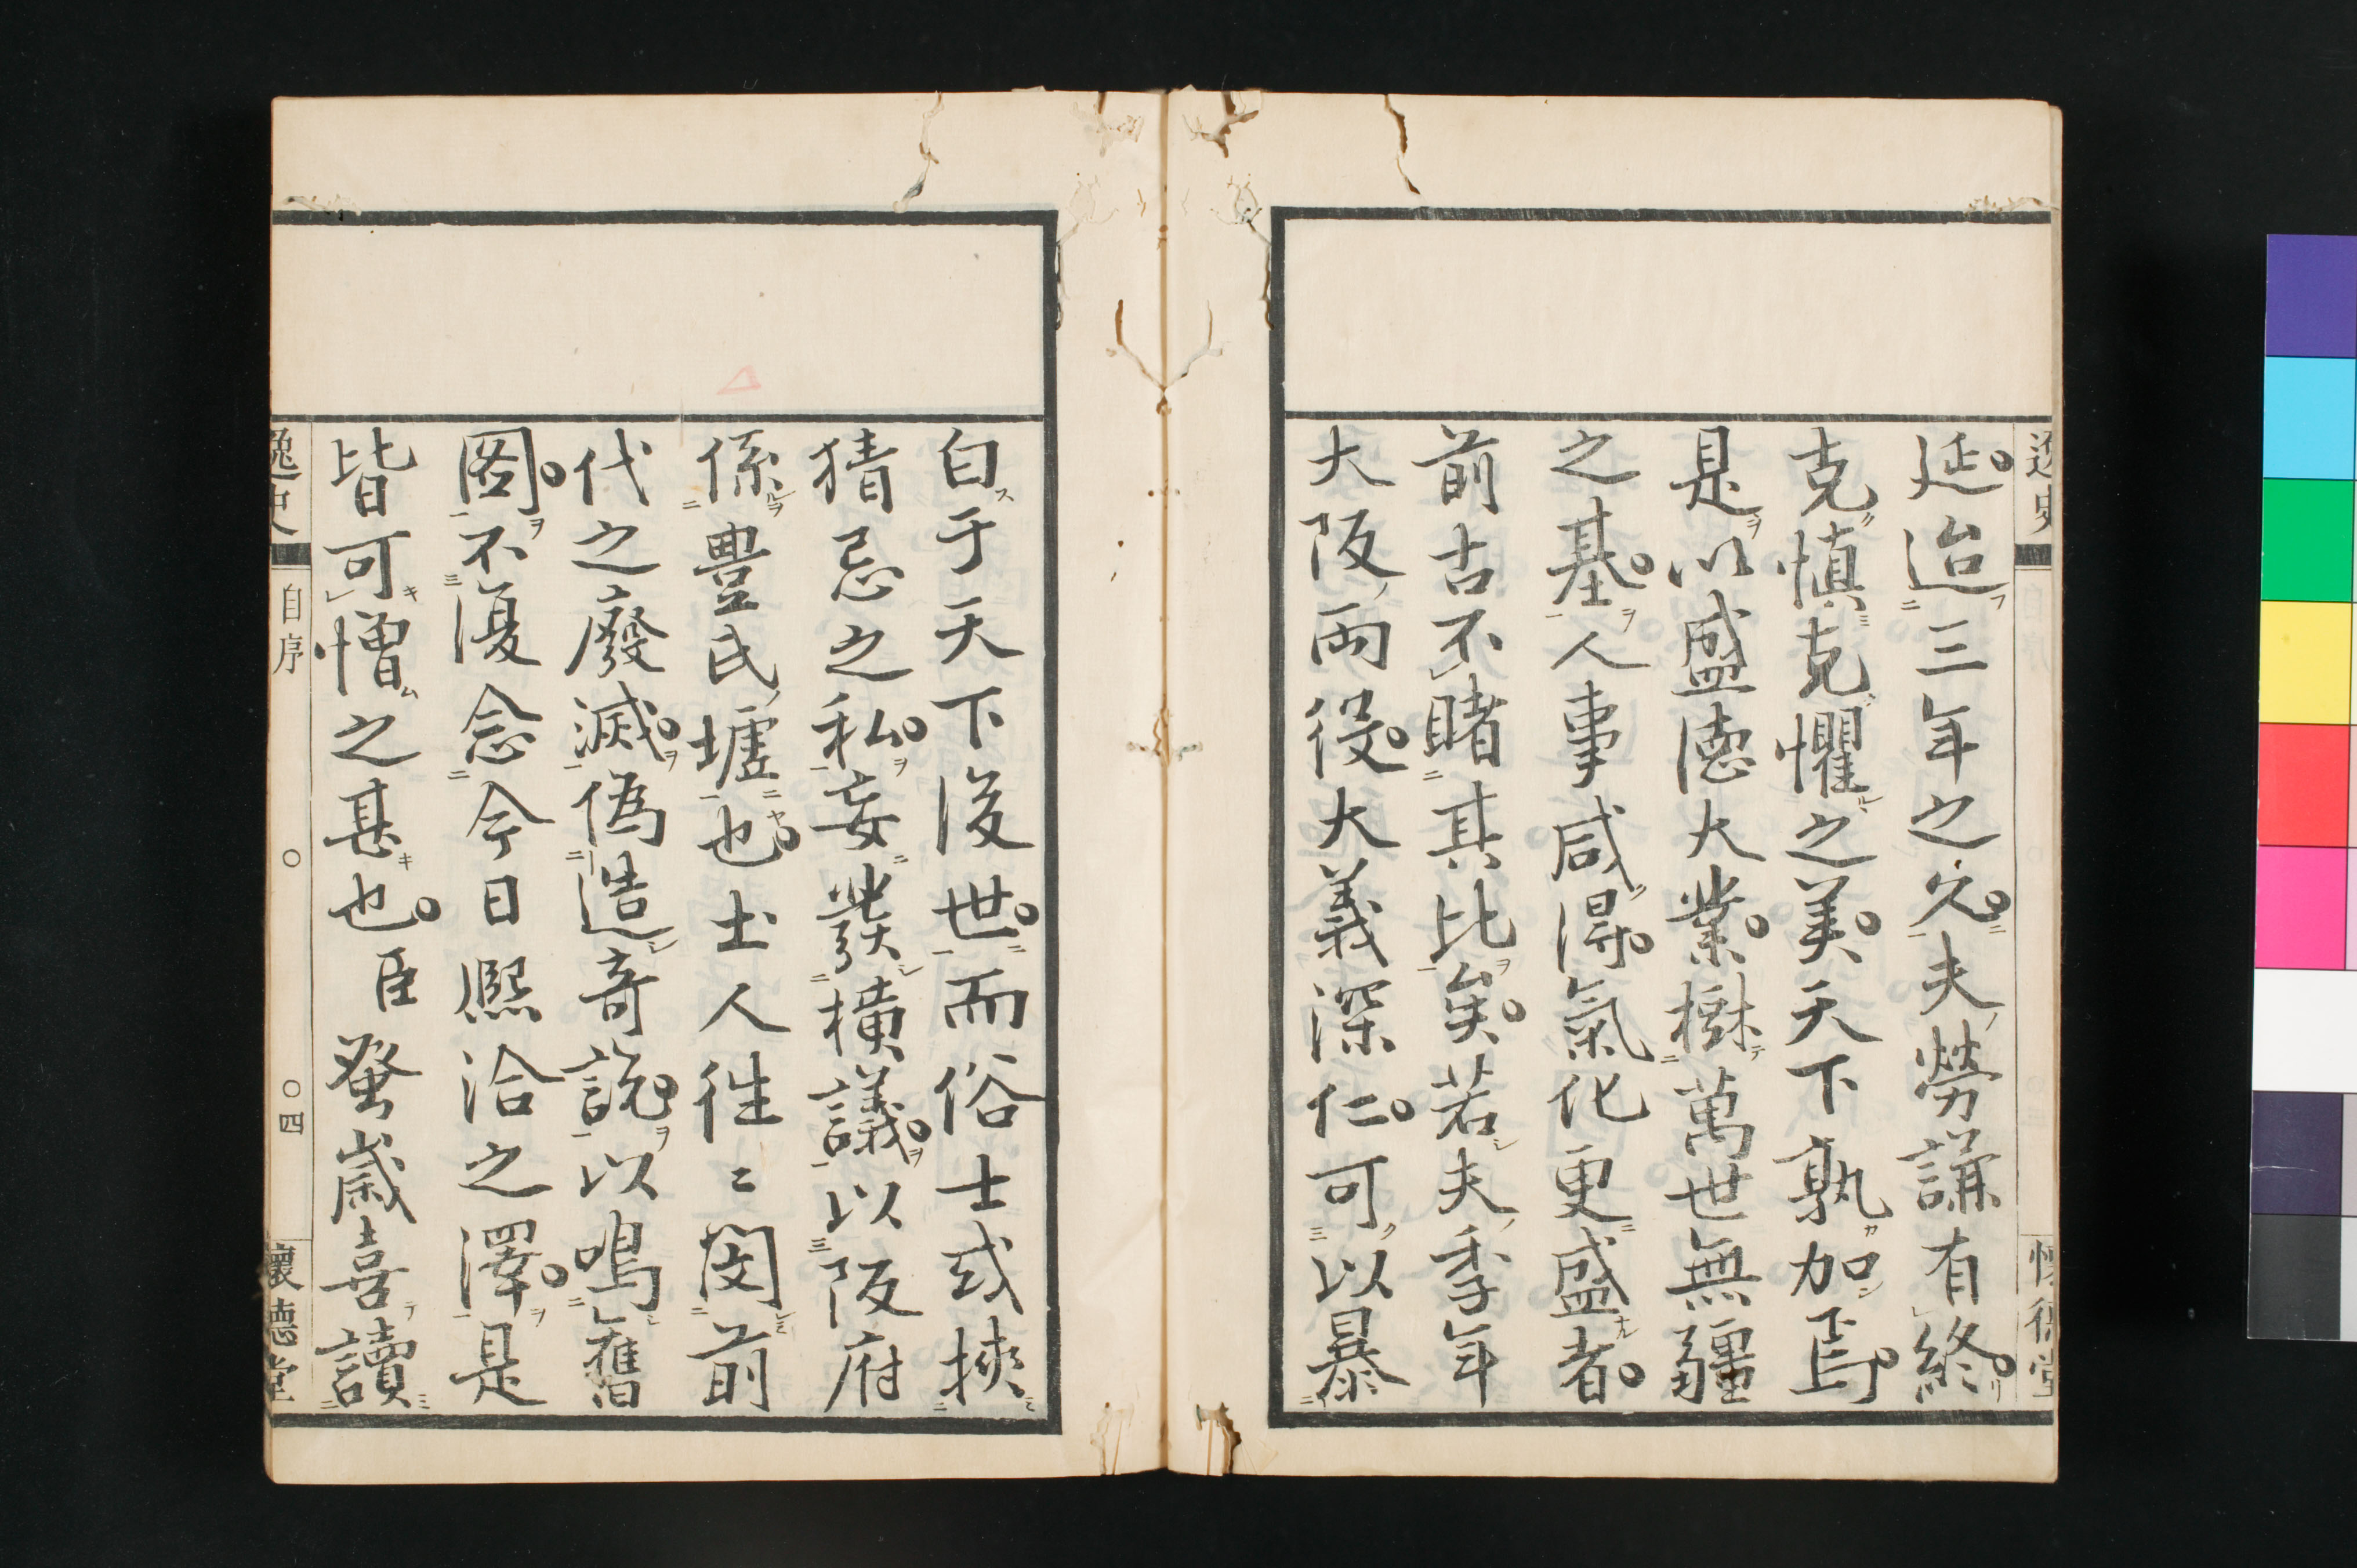 逸史
懷德堂
延迨三年之久夫勞謙有終
克慎克懼之美天下孰加焉
是以盛德大業樹萬世無疆
之基人事咸得氣化更盛者
前古不睹其比矣若夫季年
大阪兩役大義深仁可以暴
白于天下後世而俗士或挾
猜忌之私妄發橫議以阪府
係豊氏墟也士人徃〻閔前
代之廢滅偽造奇説以鳴舊
圀不復念今日熈洽之澤是
皆可憎之甚也臣蚤歲喜讀
逸史
自序
〇
〇四
懷德堂